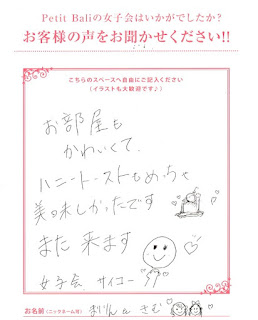 Petit Baliの女子会はいかがでしたか?
お客様の声をお聞かせください!!
こちらのスペースへ自由にご記入ください
(イラストも大歓迎です♪)
お部屋も
かわいくて、
ハニートーストもめっちゃ
美味しかったです
また来ます
女子会 サイコー
お名前(ニックネーム可)
まじんα さむ